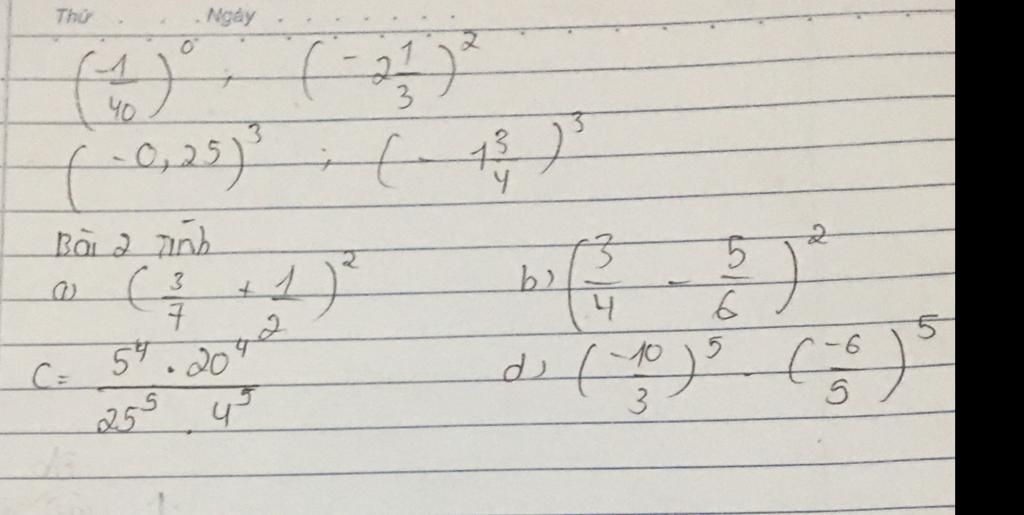 Thứ . . . Ngày . . . . . . .
(-1/40)^0 ; (-2 1/3)^2
(-0,25)^3 ; (-1 3/4)^3
Bài 2 Tính
a) (3/7 + 1/2)^2 b) (3/4 - 5/6)^2
C = 5^4 . 20^4 / 25^5 . 4^5 d) (-10/3)^5 . (-6/5)^5